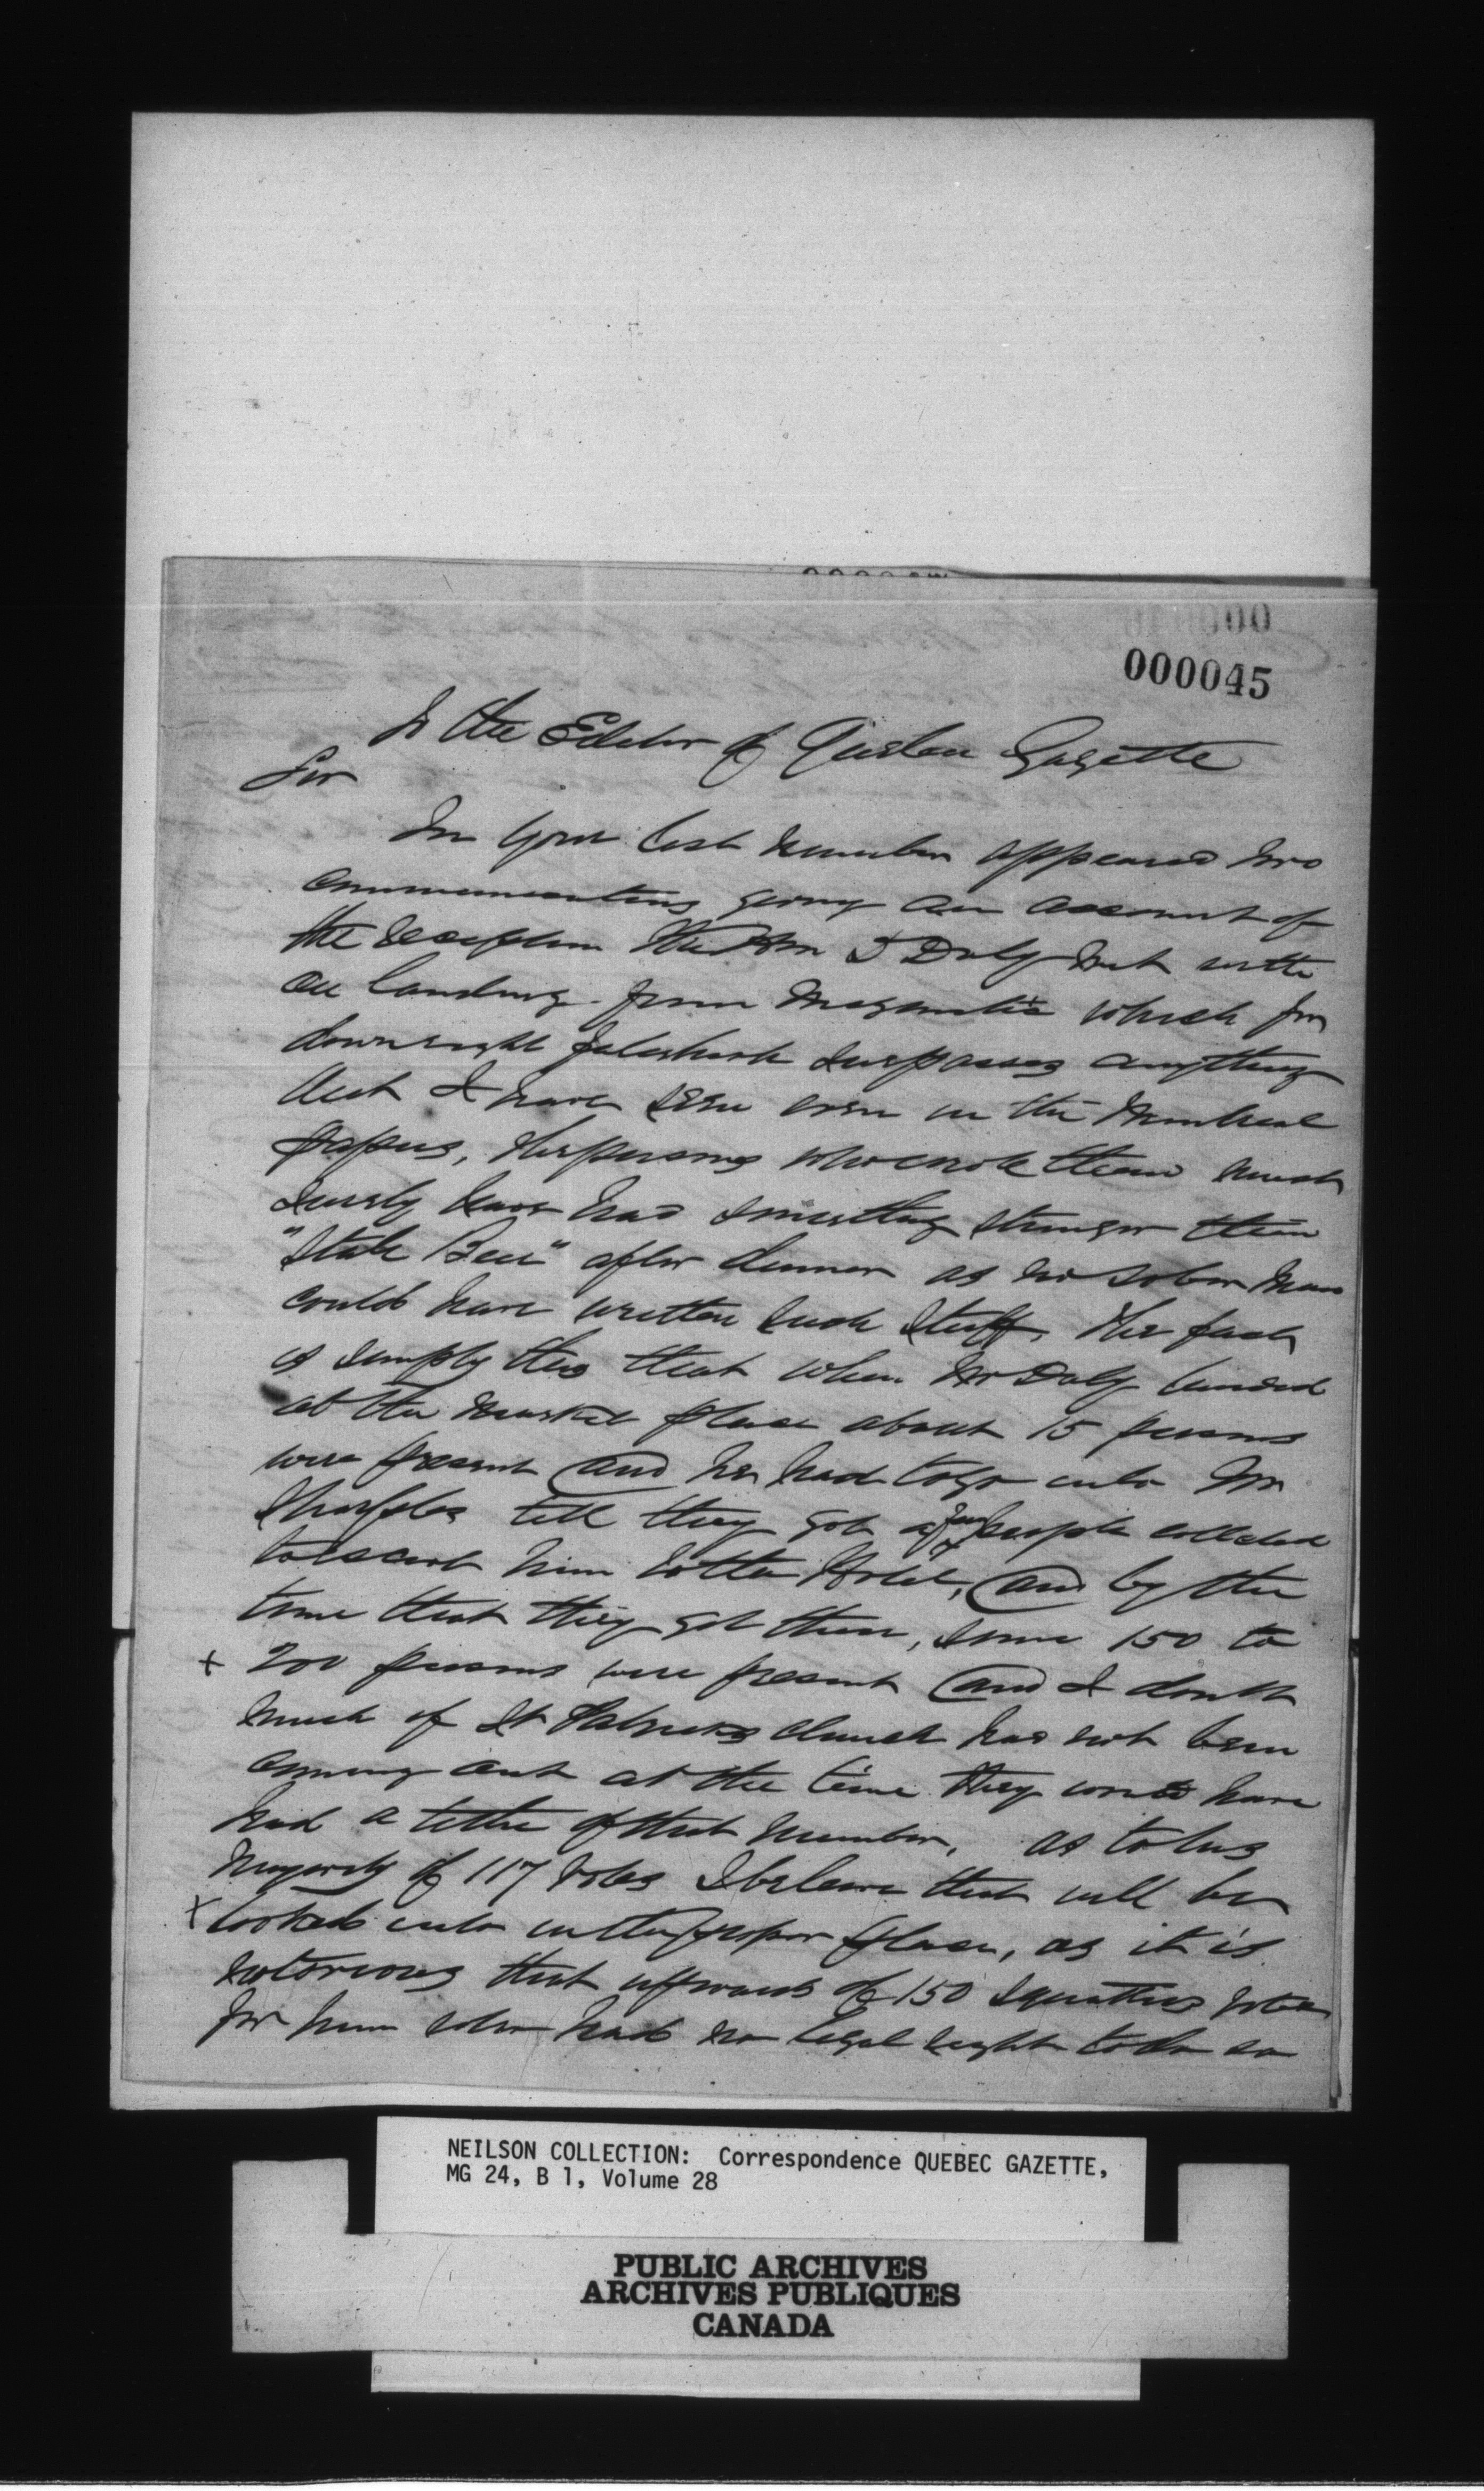 000045
To the Editor of Quebec Gazette
Sir
In your last number appeared two
communications giving an account of
the reception the Hon D Daly met with
on landing from Megantic which for
downright falsehood surpasses anything
that I have seen even in the Montreal
papers, the persons who wrote them must
surely have had something stronger than
"Stale Beer" after dinner as no sober man
could have written such stuff. The fact
is simply this that when Mr Daly landed
at the market place about 15 persons
were present and he had to go into Mr
Sharples till they got a few people collected
to escort him to the Hotel, and by the
time that they got there, some 150 to
+ 200 persons were present and I doubt
much if St Patricks church had not been
coming out at the time they would have
had a tithe of that number. as to his
majority of 117 votes I believe that will be
+ looked into in the proper place, as it is
notorious that upwards of 150 squatters voted
for him who had no legal right to do so
NEILSON COLLECTION: Correspondence QUEBEC GAZETTE,
MG 24, B 1, Volume 28
PUBLIC ARCHIVES
ARCHIVES PUBLIQUES
CANADA